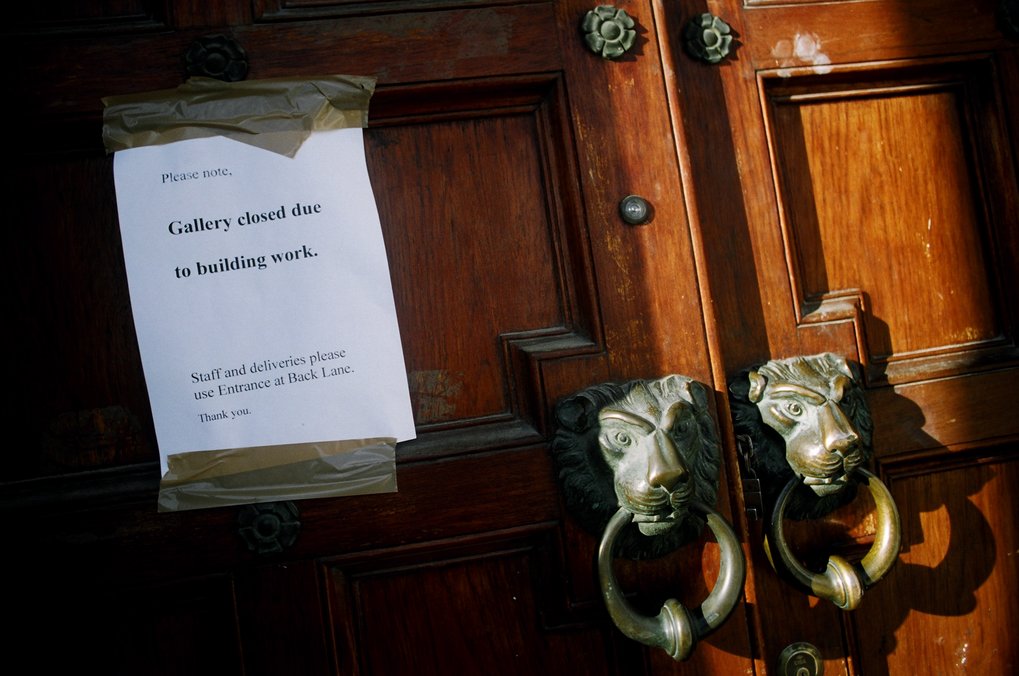 Please note,
Gallery closed due
to building work.
Staff and deliveries please
use Entrance at Back Lane.
Thank you.